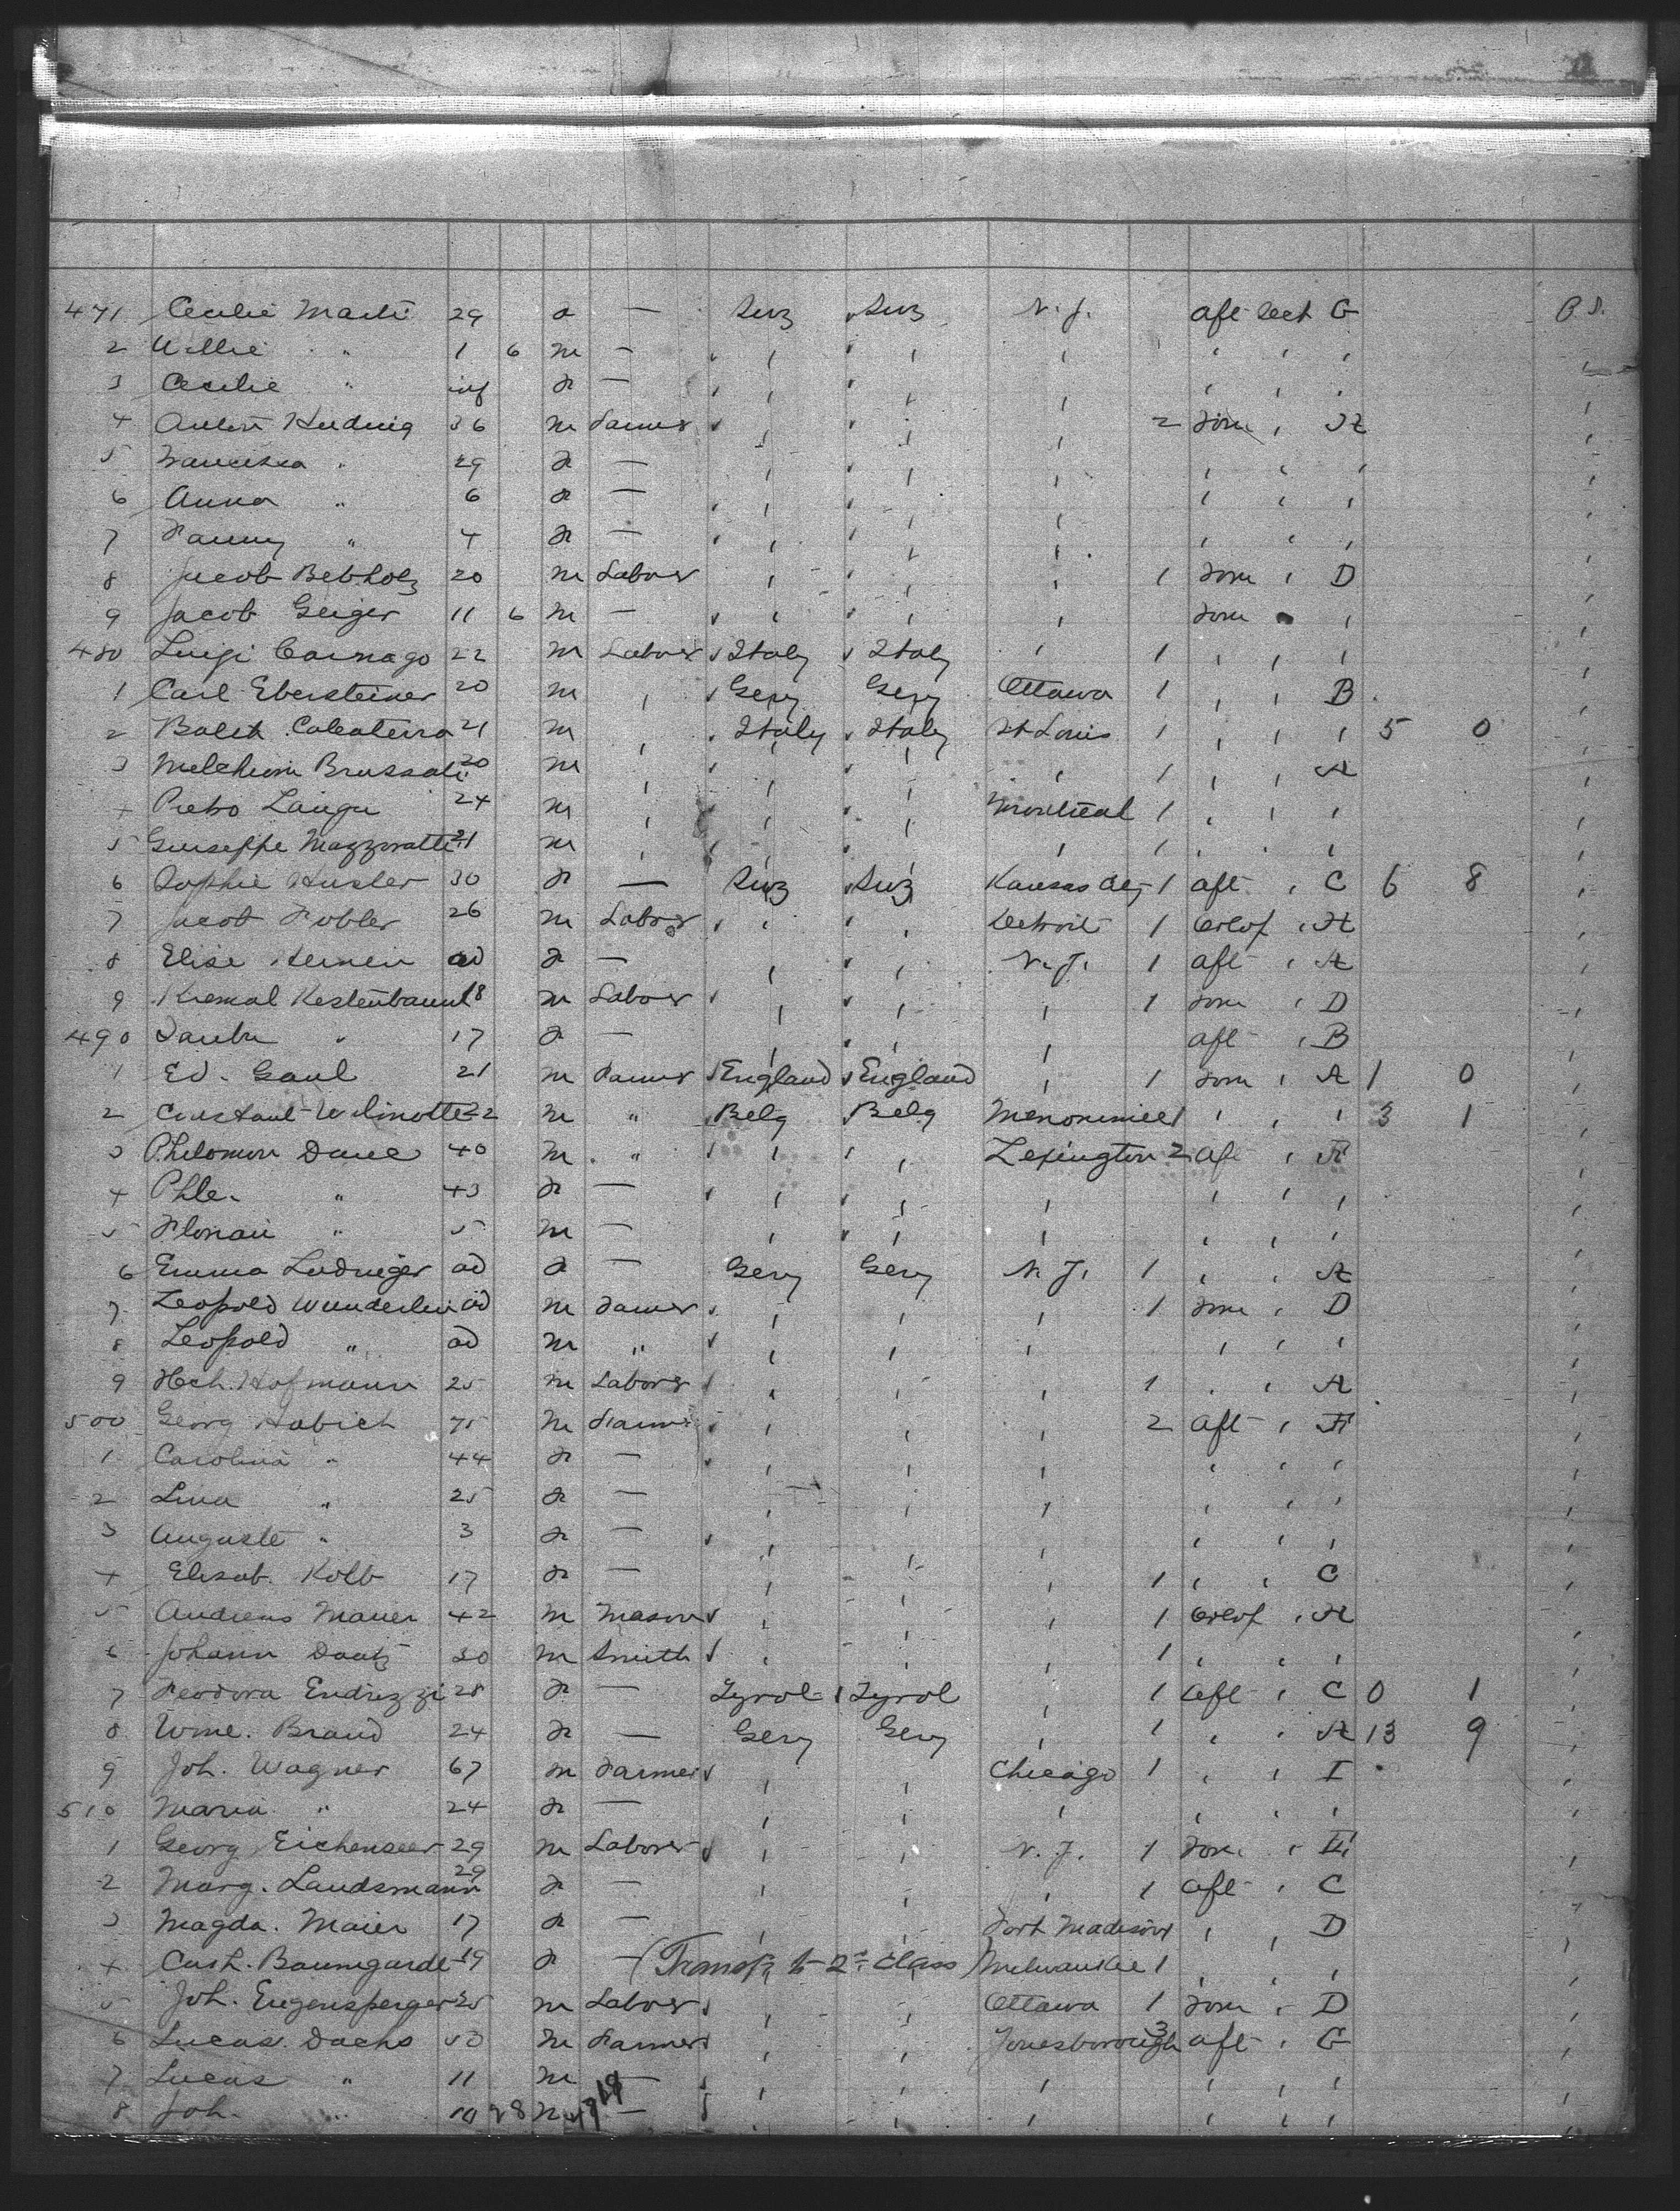 471 Cecilie Marti 29 f — Swz Swz N. Y. aft Sect G P. S.
2 Willie " 1 6 m —
3 Cecilie " inf f —
4 Anton Hedwig 36 m Farmer 2 forw H
5 Francisca " 29 f —
6 Anna " 6 f —
7 Fanny " 4 f —
8 Jacob Bebholz 20 m Labour 1 forw D
9 Jacob Geiger 11 6 m — forw
480 Luigi Cornago 22 m Labour Italy Italy 1
1 Carl Ebersteiner 20 m Gery Gery Ottawa 1 B
2 21 m Italy Italy St Louis 1 5 0
3 Brussati 20 m 1 A
4 Pietro 24 m Montreal 1
5 Giuseppe Mazzoratti 21 m 1
6 Sophie Husler 30 f — Swz Swz Kansas City 1 aft C 6 8
7 Jacob Kobler 26 m Labour Detroit 1 Orlop H
8 Elise ad f — N. Y. 1 aft A
9 Kestenbaum 18 m Labour 1 forw D
490 " 17 f — aft B
1 Ed. Gaul 21 m Farmer England England 1 forw A 1 0
2 Constant 22 m " Belg Belg Menominee 1 3 1
3 Philomon 40 m " Lexington 2 aft
4 Phle. " 43 f —
5 Florian " 5 m —
6 Emma Ludwiger ad f — Gery Gery N. Y. 1 A
7 Leopold Wunderlin ad m Farmer 1 forw D
8 Leopold " ad m "
9 Hch. Hofmann 25 m Labour 1 A
500 Georg Habich 75 m Farmer 2 aft
1 Carolina " 44 f —
2 Lina " 25 f —
3 Auguste " 3 f —
4 Elisab. Kolb 17 f — 1 C
5 Andreas Mauer 42 m Mason 1 Orlop H
6 Johann 30 m Smith 1
7 Feodora Endrizzi 28 f — Tyrol Tyrol 1 aft C 0 1
8 Wme. Brand 24 f — Gery Gery 1 A 13 9
9 Joh. Wagner 67 m Farmer Chicago 1 I
510 Maria " 24 f —
1 Georg Eichenseer 29 m Labour N. Y. 1 forw
2 Marg. Landsmann 29 f — 1 aft C
3 Magda. Maier 17 f — Fort Madison 1 D
4 Cash. Baumgarde 19 f — (Transf. to 2nd class) Milwaukee 1
5 Joh. Engensperger 25 m Labour Ottawa 1 forw D
6 Lucas Dachs 50 m Farmer Jonesborough 3 aft G
7 Lucas " 11 m —
8 Joh. " 10 m —